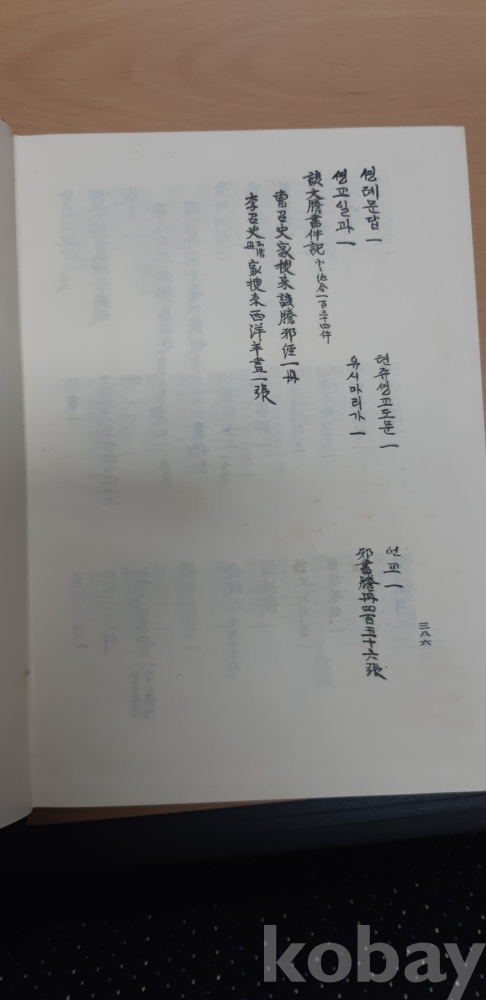 三八六
문답 一 텬쥬셩교도문 一 언교 一
셩교일과 一 유시마리가 一 邪書謄冊四百五十六張
諺文謄書件記 小〻紙合一百三十四件
曺召史家捜来諺謄邪経一冊
李召史 家捜来西洋羊畫一張
kobay